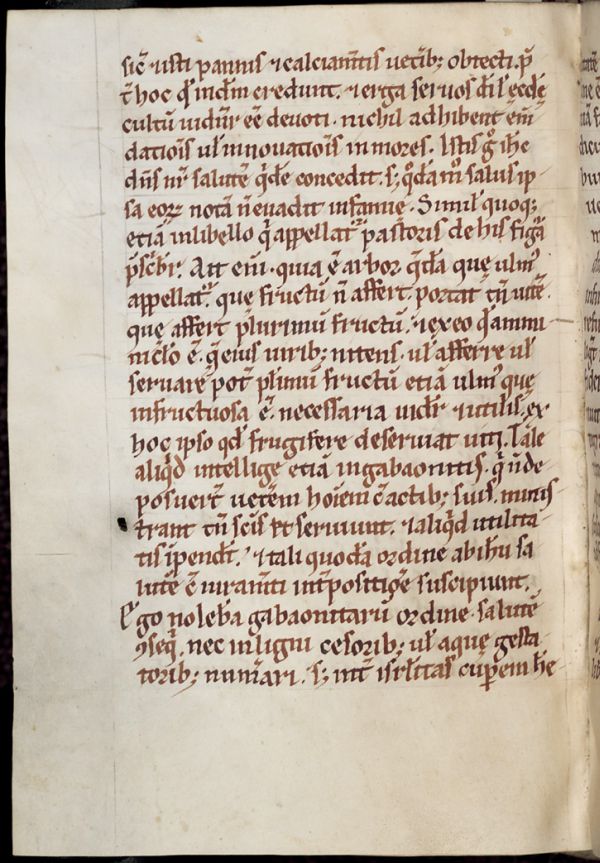 sic̄ usti pannis ⁊ calciam̄tis uetib; obtecti. p̄
t̄ hoc qđ in dm̄ credunt. ⁊ erga seruos dī ł ęccłę
cultū uidn̄r eē deuoti. nichil adhibent em̄
dationis uł innouationis in mores. Istis g̊ ih̄c
dn̄s nr̄ salutē qͥdē concedit. s; qͦdā mͦ salus ip
sa eoꝝ notā n̄ euadit infamię. Simił quoq;
etiā in libello qͥ appellat᷑ pastoris de his figͣ
p̄scͥbit᷑. Ait eni. quia ē arbor qͣdā quę ulmꝰ
appellat᷑. quę fructū n̄ affert. portat tn̄ uitē
quę affert plurimū fructū. ⁊ ex eo qđ ammi
nicło ē. ꝗ eius uirib; nitens. uł afferre uł
seruare pot̄ plimū fructū etiā ulmꝰ quę
infructuosa ē. necessaria uidet᷑ ⁊ utilis. ex
hoc ipso qđ frugifere deseruiat uiti. Tale
aliqͥd intellige etiā in gabaonitis. qͥ n̄ de
posuert̄ ueterem hōiem c̄ actib; suis. minis
trant tn̄ scīs ⁊ seruiunt. ⁊ aliqͥd utilita
tis īpendt̄. ⁊ tali quodā ordine ab ihu sa
lutē c̄ iuram̄ti int̄positiōe suscipiunt.
Ego nolebā gabaonitarū ordine salutē
ꝯseqͥ. nec in ligni cesorib; uł aquę gesta
torib; num̄ari. s; int̄ isrłitas cuperem he